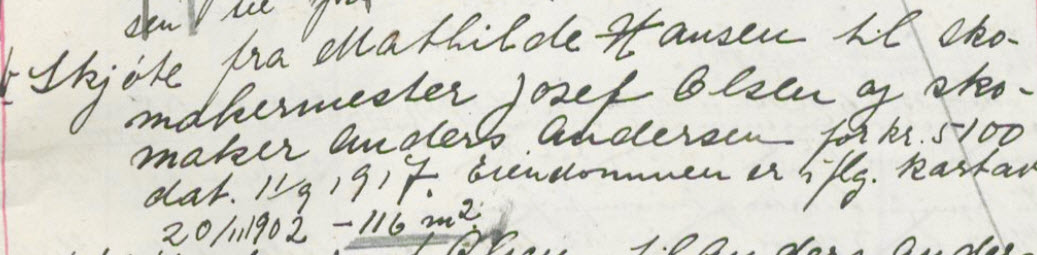 sen til
Skjöte fra Mathilde Hansen til sko-
makermester Josef Olsen og sko-
maker Anders Andersen for kr. 5100
dat. 11/9 1917. Eiendommen er iflg. kart av
20/11 1902 - 116 m².
Olsen til Anders Ander-